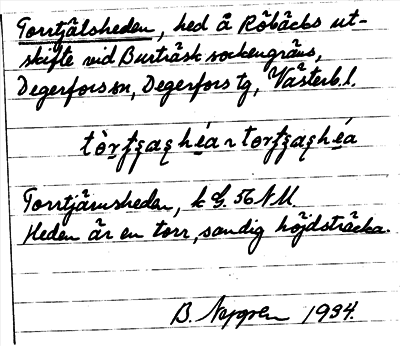 Torrtjälsheden, hed å Röbäcks ut-
skifte vid Burträsk sockengräns,
Degerfors sn, Degerfors tg, Västerb. l.
Torrtjärnsheden, k G. 56 NU.
Heden är en torr, sandig höjdsträcka.
B. Nygren 1934.